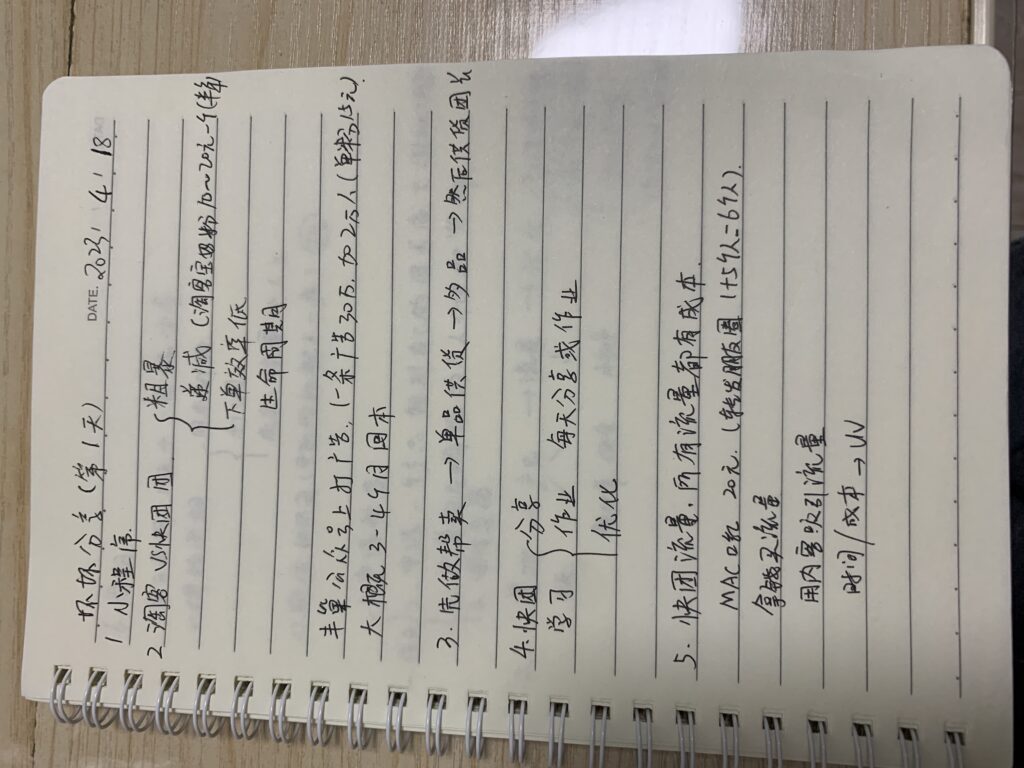 DATE. 2023. 4. 18
环环分享(第1天)
1 小程序.
2 淘客 VS快团团.
粗暴
递减(淘客宝妈粉10~20元一个(丰单
下单效率低
生命周期
丰单公众号上打广告,(一条广告30万,加2万人(单粉15元).
大概3-4个月回本
3. 先做帮卖→单品供货→多品→然后供货团长
4. 快团 分享
学习 作业 每天分享或作业
优化
5. 快团流量,所有流量都有成本.
MAC口红 20元.(转发朋友圈 1+5个人=6个人).
拿钱买流量
用内容吸引流量
时间/成本→UV